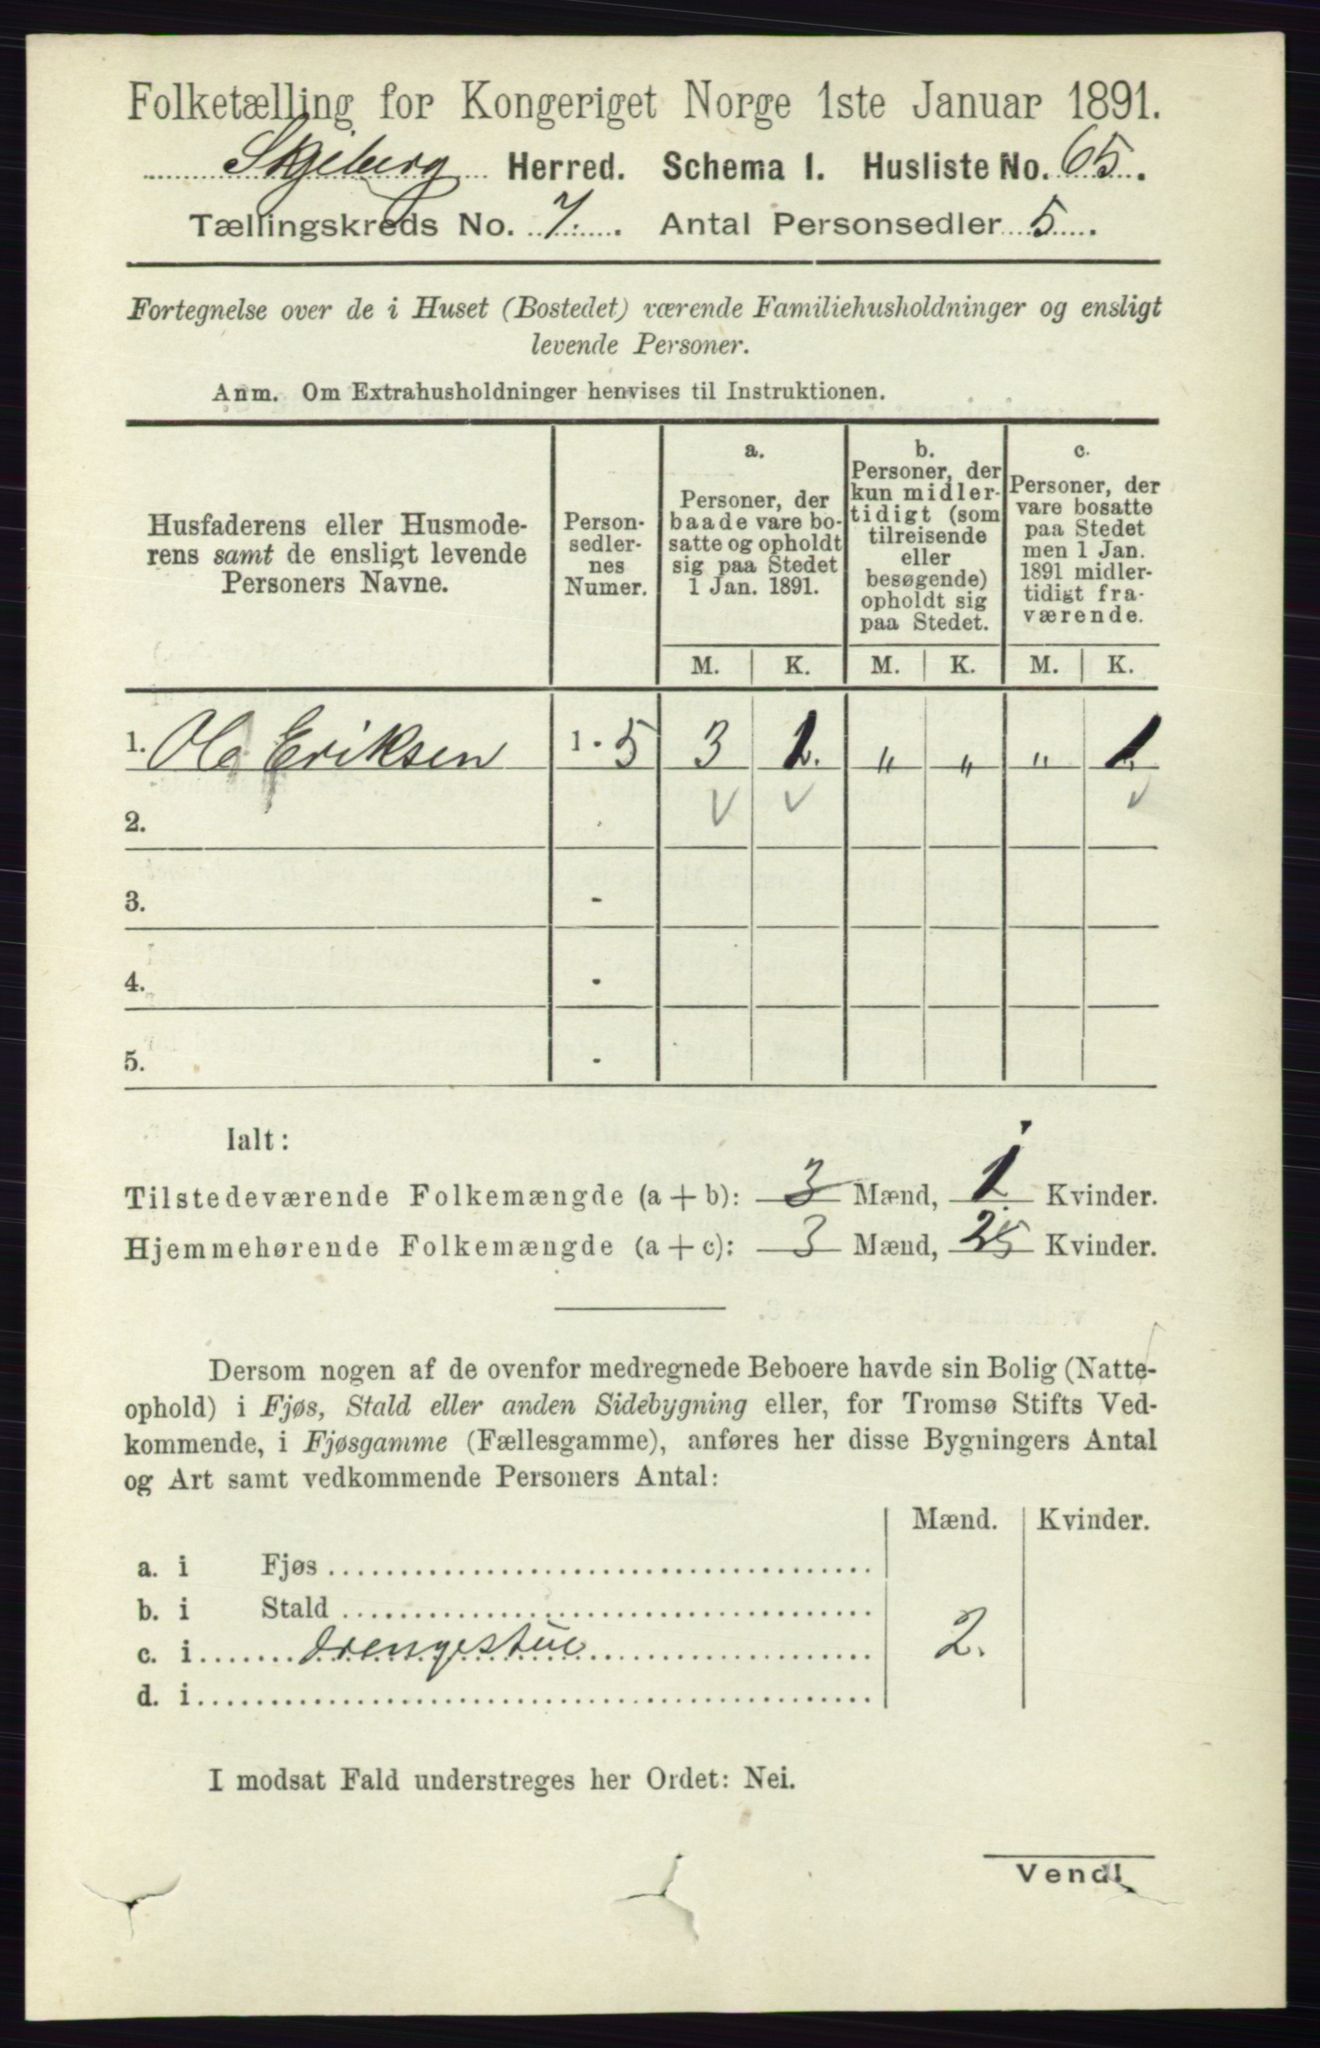 Folketælling for Kongeriget Norge 1ste Januar 1891.
Skjeberg Herred. Schema I. Husliste No. 65.
Tællingskreds No. 7. Antal Personsedler 5.
Fortegnelse over de i Huset (Bostedet) værende Familiehusholdninger og ensligt
levende Personer.
Anm. Om Extrahusholdninger henvises til Instruktionen.
Husfaderens eller Husmode-
rens samt de ensligt levende
Personers Navne.
Person-
sedler-
nes
Numer.
a.
Personer, der
baade vare bo-
satte og opholdt
sig paa Stedet
1 Jan. 1891.
b.
Personer, der
kun midler-
tidigt (som
tilreisende
eller
besøgende)
opholdt sig
paa Stedet.
c.
Personer, der
vare bosatte
paa Stedet
men 1 Jan.
1891 midler-
tidigt fra-
værende.
M. K. M. K. M. K.
1. Ole Eriksen 1 - 5 3 1. „ „ „ 1.
2.
3. -
4. -
5. -
Ialt:
Tilstedeværende Folkemængde (a + b): 3 Mænd, 1 Kvinder.
Hjemmehørende Folkemængde (a + c): 3 Mænd, 2 Kvinder.
Dersom nogen af de ovenfor medregnede Beboere havde sin Bolig (Natte-
ophold) i Fjøs, Stald eller anden Sidebygning eller, for Tromsø Stifts Ved-
kommende, i Fjøsgamme (Fællesgamme), anføres her disse Bygningers Antal
og Art samt vedkommende Personers Antal:
Mænd. Kvinder.
a. i Fjøs
b. i Stald
c. i drengestue 2.
d. i
I modsat Fald understreges her Ordet: Nei.
Vend!